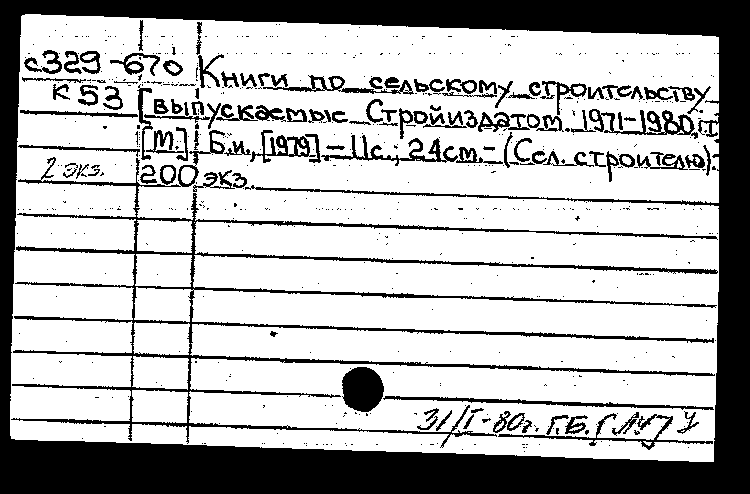 с329-670 Книги по сельскому строительству
К 53 [выпускаемые Стройиздатом. 1971-1980 гг.
[М.] Б.и., [1979]. - 11с.; 24см. - (Сел. строителю).
2 экз. 200 экз.
31/I-80г. Г.Б.